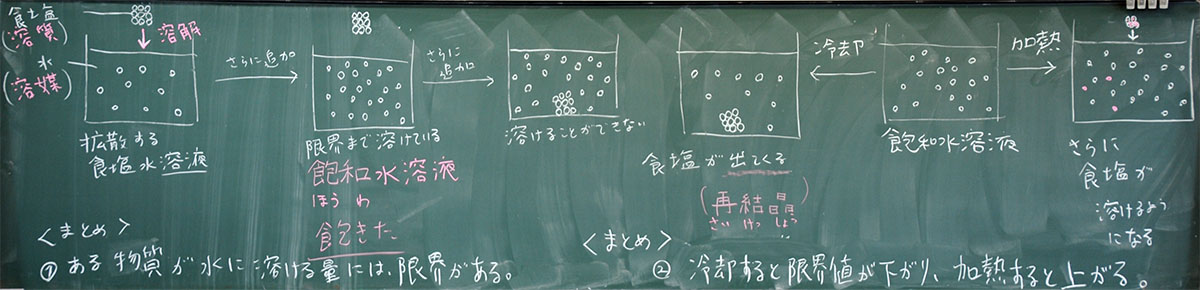 食塩
(溶質)
溶解
水
(溶媒)
拡散する
食塩水溶液
さらに追加
限界まで溶けている
飽和水溶液
ほうわ
飽きた
さらに
追加
溶けることができない
<まとめ>
① ある物質が水に溶ける量には、限界がある。
食塩が出てくる
(再結晶)
さいけっしょう
冷却
飽和水溶液
加熱
さらに
食塩が
溶けるよう
になる
<まとめ>
② 冷却すると限界値が下がり、加熱すると上がる。